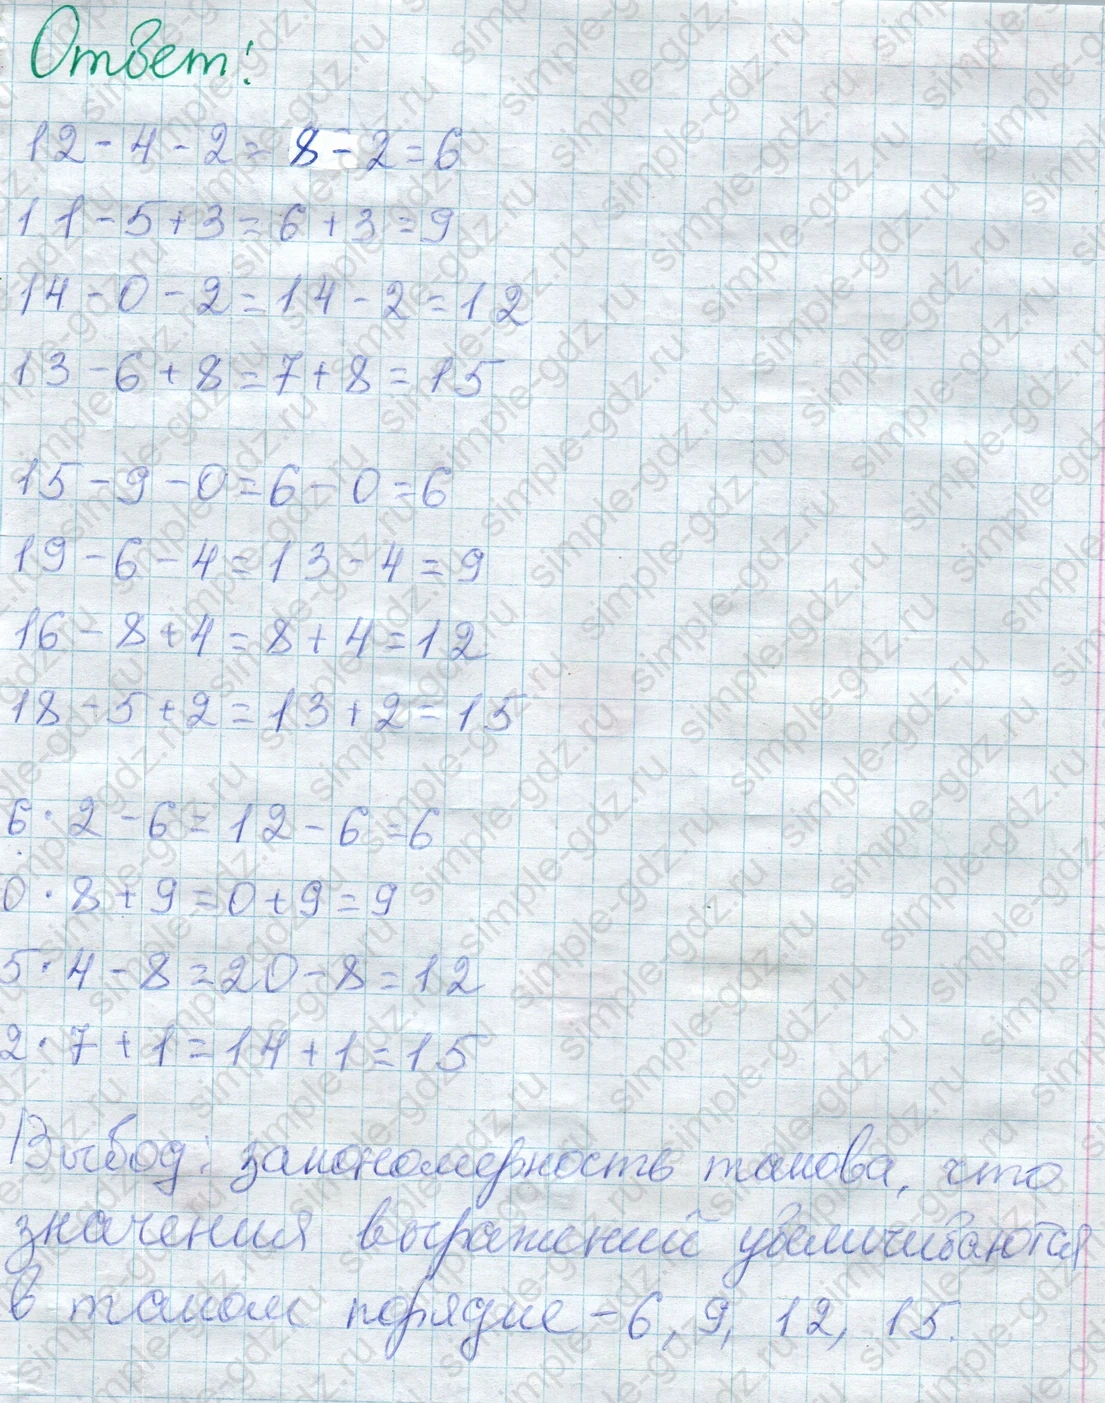 Ответ:
12-4-2=8-2=6
11-5+3=6+3=9
14-0-2=14-2=12
13-6+8=7+8=15
15-9-0=6-0=6
19-6-4=13-4=9
16-8+4=8+4=12
18-5+2=13+2=15
6·2-6=12-6=6
0·8+9=0+9=9
5·4-8=20-8=12
2·7+1=14+1=15
Вывод: закономерность такова, что
значения выражений увеличиваются
в таком порядке - 6, 9, 12, 15.
simple-gdz.ru